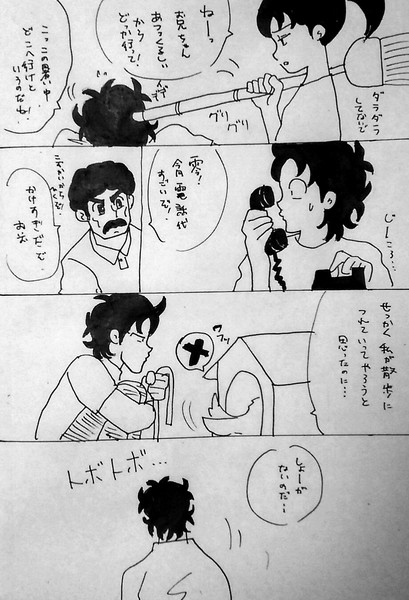 ねーっ
お兄ちゃん
あつっくるしい
から
どっか行って!
ダラダラ
してないで
グリグリ
こっこの暑い中
どこへ行けと
いうのだね!
じーころ…
零!
今月電話代
すごいぞ!
かけすぎだぞ
おまえ
せっかく私が散歩に
つれていってやろうと
思ったのに…
ワフッ
しょーが
ないのだ…
トボトボ…